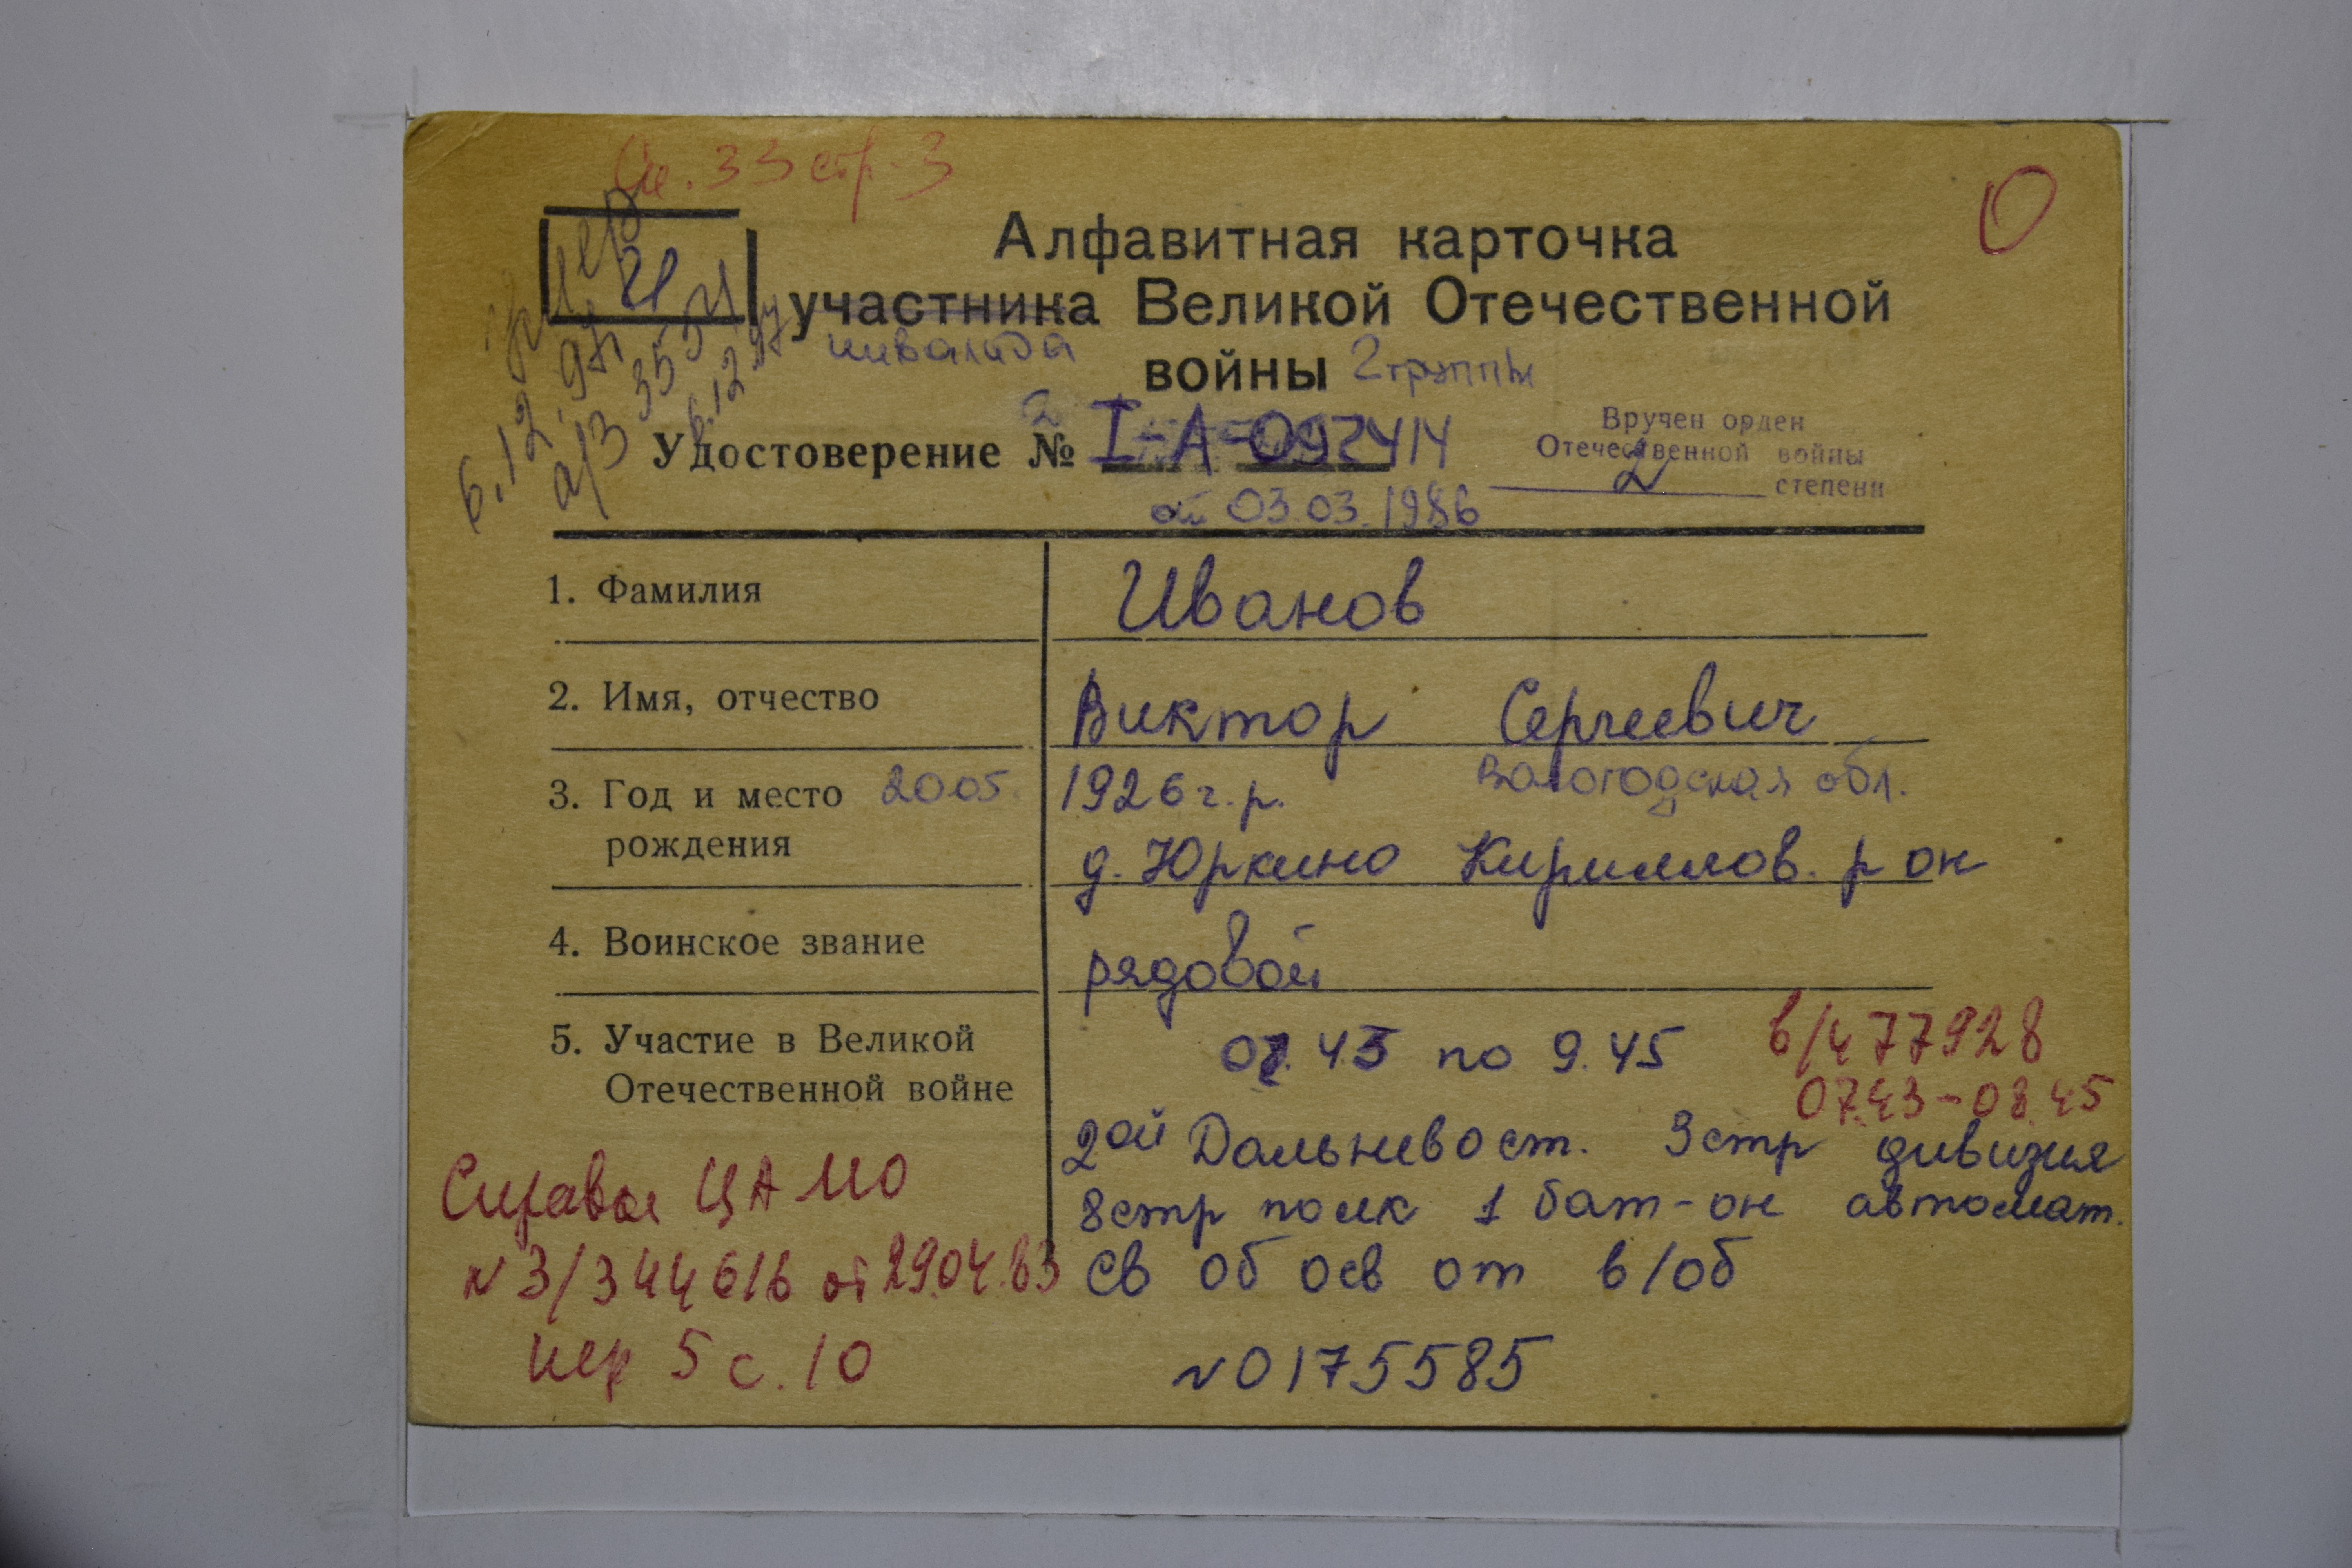 Сп. 33 стр. 3
О
И
умер
6.12.97г
а/з 3534
6.12.97
Алфавитная карточка
участника Великой Отечественной
инвалида
войны 2 группы
Удостоверение № I-А-092414
от 03.03.1986
Вручен орден
Отечественной войны
2 степени
1. Фамилия Иванов
2. Имя, отчество Виктор Сергеевич
3. Год и место 2005. 1926 г.р. Вологодская обл.
рождения д. Юркино Кириллов. р он
4. Воинское звание рядовой
5. Участие в Великой 07.43 по 9.45 в/ч 77928
Отечественной войне 07.43-08.45
2ой Дальневост. 3 стр дивизия
Справка ЦАМО 8 стр полк 1 бат-он автомат.
N 3/344616 от 29.04.83 св об осв от в/об
пер 5 с. 10 N 0175585